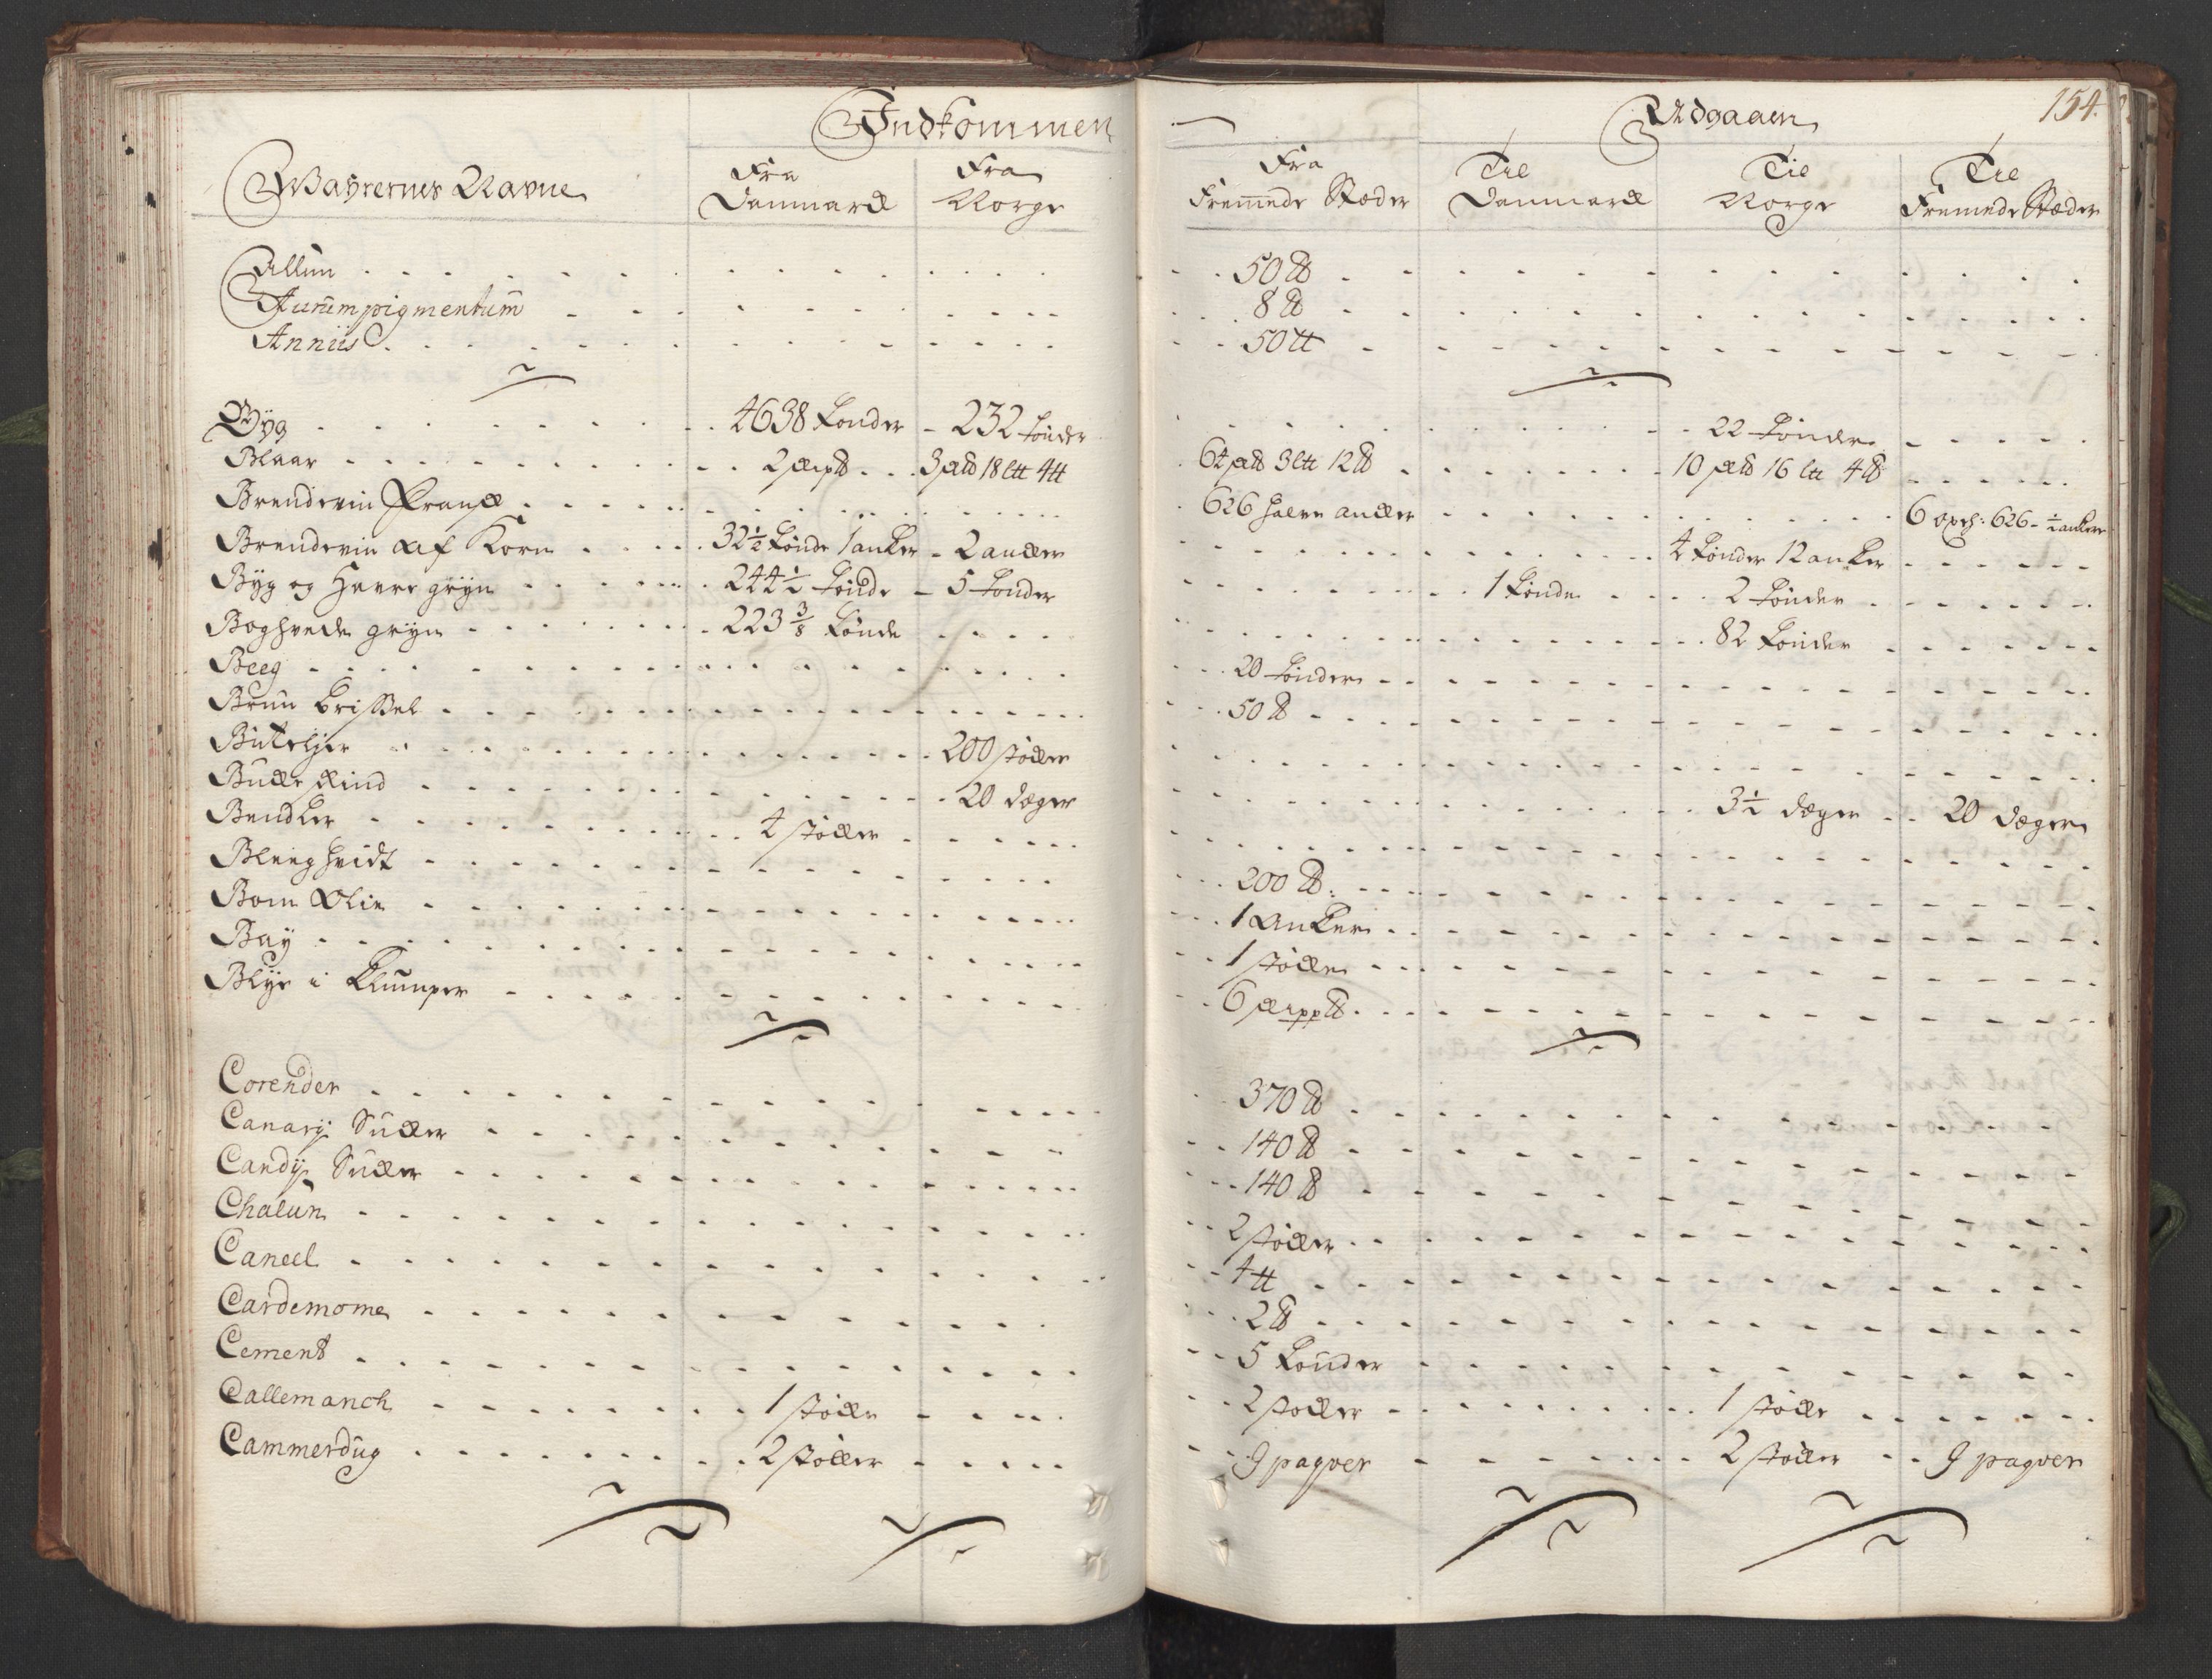 Indkommen
Udgaaen 154.
Wahrernes Navne Fra Danmarck Fra Norge Fra Fremmede Stæder Til Danmarck Til Norge Til Fremmede Stæder
Allun 50 ℔
Aurumpigmentum 8 ℔
Anniis 50 ℔
Byg 4638 tønder 232 tønder 22 tønder
Blaar 2 skip℔ 3 s℔ 18 l℔ 4 ℔ 64 s℔ 3 l℔ 12 ℔ 10 s℔ 16 l℔ 4 ℔
Brendevin Fransk 626 halve ancker 6 oxh: 626 - ½ anker
Brendevin af Korn 32½ tønde 1 anker 2 ancker 4 tønder 12 anker
Byg og Havre gryn 244½ tønde 5 tønder 1 tønde 2 tønder
Boghvede gryn 223⅜ tønde 82 tønder
Beeg 20 tønder
Brun 50 ℔
Butelyer 200 støcker
Bucke Skind 20 deger 3½ deger 20 deger
Bendler 4 støcker
Bleeghvidt 200 ℔
Bom Olie 1 Anker
Bay 1 støcke
Blye i Klumper 6 skipp℔
Corender 370 ℔
Canary Sucker 140 ℔
Candy Sucker 140 ℔
Chalun 2 støcker
Caneel 4 ℔
Cardemome 2 ℔
Cement 5 tønder
Callemanch 1 støcke 2 støcker 1 støcke
Cammerdug 2 støcker 9 paqver 2 støcker 9 paqver